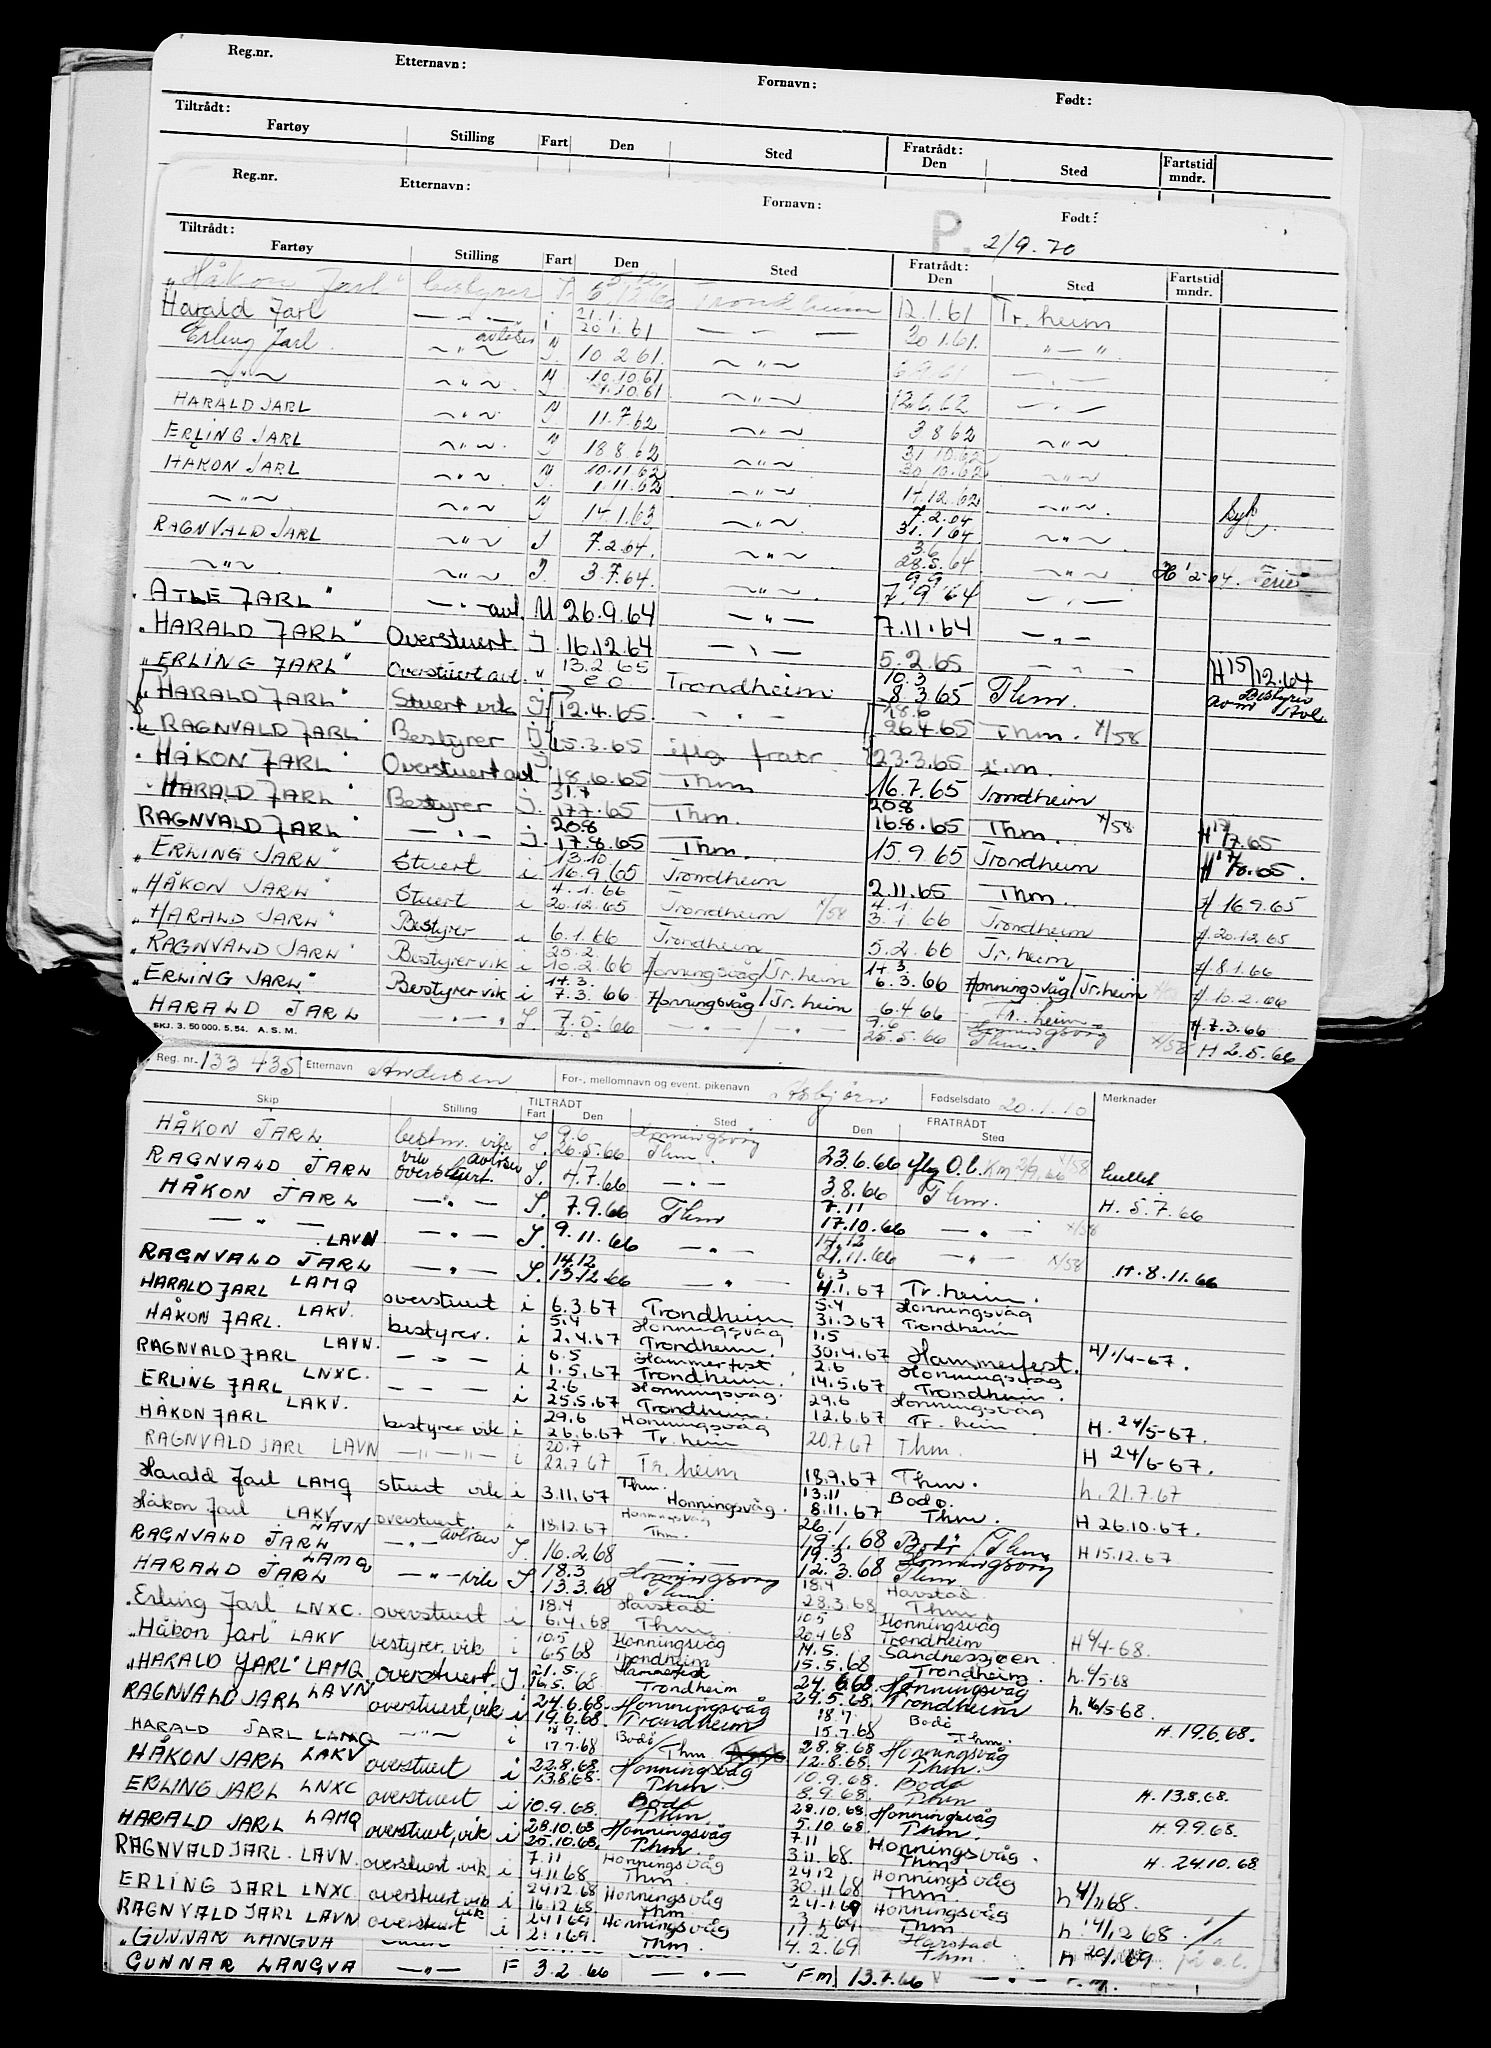 Reg.nr. Etternavn: Fornavn: Født:
Tiltrådt: Fratrådt:
Fartøy Stilling Fart Den Sted Den Sted Fartstid mndr.
Reg.nr. Etternavn: Fornavn: Født:
P. 2/9.70
Tiltrådt: Fratrådt:
Fartøy Stilling Fart Den Sted Den Sted Fartstid mndr.
"Håkon Jarl" bestyrer Trondheim 12.1.61 Tr.heim
Harald Jarl — " — i 21.1. 20.1.61 — " — 30.1.61. " — "
Erling Jarl ~ " ~ avløser 10.2.61. ~ " ~ — " —
~ " ~ ~ " ~ 10.10.61 1.10.61 ~ " ~ 12.6.62 — " —
HARALD JARL ~ " ~ 11.7.62 ~ " ~ 3.8.62 ~ " ~
ERLING JARL ~ " ~ 18.8.62 ~ " ~ 31.10.62 30.10.62 ~ " ~
HÅKON JARL ~ " ~ 10.11.62 1.11.62 ~ " ~ 14.12.62 ~ " ~
~ " ~ ~ " ~ 14.1.63 ~ " ~ 7.2.64 31.1.64 ~ " ~ Syk.
RAGNVALD JARL ~ " ~ J 7.2.64. ~ " ~ 3.6 28.5.64 ~ " ~ Ferie
~ " ~ ~ " ~ J. 3.7.64. ~ " ~ 9.9. 7.9.64 — " —
ATLE JARL" — " — avl. U 26.9.64 — " — 7.11.64 — " —
"HARALD JARL" Overstuert J. 16.12.64 — " — 5.2.65 — " — H 15/12.64
"ERLING JARL" Overstuert avl. " 13.2.65 Trondheim 10.3 8.3.65 Thm.
"HARALD JARL" Stuert vik J. 12.4.65. — " — 18.6 26.4.65 Thm. X/58
"RAGNVALD JARL" Bestyrer J. 15.3.65 iflg. fratr. 23.3.65 i.m.
"HÅKON JARL" Overstuert avl J. 18.6.65 Thm 16.7.65 Trondheim
"HARALD JARL" Bestyrer J. 31.7 17.7.65 Thm. 20.8 16.8.65 Thm. X/58 H 17/7.65
RAGNVALD JARL" — " — J. 20.8 17.8.65 Thm. 15.9.65 Trondheim H 17/8.65.
"ERLING JARL" Stuert i 13.10 16.9.65 Trondheim 2.11.65 Thm. H 16.9.65
"HÅKON JARL" Stuert i 4.1.66 20.12.65 Trondheim X/58 4.1. 3.1.66 Trondheim H. 20.12.65
"HARALD JARL" Bestyrer i 6.1.66 Trondheim 5.2.66 Tr.heim H. 8.1.66
"RAGNVALD JARL" Bestyrer vik i 25.2. 10.2.66 Honningsvåg/Tr.heim 17.3. 6.3.66 Honningsvåg/Tr.heim H. 10.2.66
"ERLING JARL" Bestyrer vik i 17.3. 7.3.66 Honningsvåg/Tr.heim 6.4.66 Tr.heim H. 7.3.66
HARALD JARL — " — J. 7.5.66 — " — / — " — 9.6 25.5.66 Honningsvåg Thm. X/58 H 2.5.66
SKJ. 3. 50 000. 5. 54. A. S. M.
Reg. nr. 133 435 Etternavn Andersen For-, mellomnavn og event. pikenavn Asbjørn Fødselsdato 20.1.10 Merknader
TILTRÅDT FRATRÅDT
Skip Stilling Fart Den Sted Den Sted
HÅKON JARL bestm. vik S. 9.6 26.5.66 Honningsvåg Thm. 23.6.66 iflg O.l. Km 2/9.66 X/58
RAGNVALD JARL vik avløser overstuert. S. 4.7.66 — " — 3.8.66 Thm. H. 5.7.66
HÅKON JARL — " — S. 7.9.66 Thm 7.11 17.10.66 — " — X/58
— " — — " — S. 9.11.66 — " — 14.12 21.11.66 — " — X/58 H. 8.11.66
RAGNVALD JARL LAVN — " — S. 14.12 13.12.66 — " — 6.3 4.1.67 Tr.heim.
HARALD JARL LAMQ overstuert i 6.3.67 Trondheim 5.4 31.3.67 Honningsvåg Trondheim
HÅKON JARL. LAKV. bestyrer. i 5.4 2.4.67 Honningsvåg Trondheim. 1.5 30.4.67 Hammerfest. H/1/4-67.
RAGNVALD JARL LAVN. — " — i 6.5 1.5.67 Hammerfest Trondheim. 2.6 14.5.67 Honningsvåg Trondheim.
ERLING JARL LNXC. — " — i 2.6 25.5.67 Honningsvåg. Trondheim. 29.6 12.6.67 Honningsvåg Tr.heim H. 24/5-67.
HÅKON JARL LAKV. bestyrer vik i 29.6 26.6.67 Honningsvåg Tr.heim 20.7.67 Thm. H 24/6-67.
RAGNVALD JARL LAVN — " — " — i 20.7 22.7.67 Tr.heim 18.9.67 Thm. h. 21.7.67
Harald Jarl LAMQ stuert vik i 3.11.67 Thm. Honningsvåg. 13.11 8.11.67 Bodø. Thm. H 26.10.67.
Håkon Jarl LAKV overstuert i 18.12.67 Honningsvåg Thm. 26.1 19.1.68 Bodø/Thm H 15.12.67
RAGNVALD JARL LAVN — " — avløser S. 16.2.68 — " — 19.3 12.3.68 Honningsvåg Thm
HARALD JARL LAMQ — " — vik S. 18.3 13.3.68 Honningsvåg Thm. 18.4 28.3.68 Harstad Thm.
"Erling Jarl LNXC. overstuert i 18.4 6.4.68 Harstad Thm. 10.5 20.4.68 Honningsvåg Trondheim H 6/4-68.
"Håkon Jarl" LAKV bestyrer, vik i 10.5 6.5.68 Honningsvåg Trondheim 14.5. 15.5.68 Sandnessjøen. Trondheim. h. 6/5-68
"HARALD JARL" LAMQ overstuert. J. 21.5. 16.5.68 Hammerfest Trondheim 24.6.68. 29.5.68. Honningsvåg Trondheim h. 16/5-68.
RAGNVALD JARL LAVN overstuert, vik i 24.6.68. 19.6.68. Honningsvåg Trondheim 18.7. 15.7.68 Bodø Thm. H. 19.6.68.
HARALD JARL LAMQ — " — i 18.7. 17.7.68 Bodø/Thm 28.8.68 12.8.68. Honningsvåg Thm.
HÅKON JARL LAKV overstuert i 22.8.68. 13.8.68. Honningsvåg Thm. 10.9.68. 8.9.68. Bodø Thm H. 13.8.68.
ERLING JARL LNXC overstuert i 10.9.68. Bodø Thm. 28.10.68. 5.10.68. Honningsvåg Thm. H. 9.9.68.
HARALD JARL LAMQ overstuert, vik i 28.10.68 25.10.68. Honningsvåg Thm. 7.11 3.11.68. Honningsvåg. Thm H. 24.10.68
RAGNVALD JARL. LAVN. overstuert vik i 7.11 4.11.68 Honningsvåg Thm. 24.12 30.11.68 Honningsvåg Thm. h 4/11 68.
ERLING JARL LNXC overstuert vik i 24.12.68 16.12.68 Honningsvåg Thm 24.1.69 Honningsvåg Thm h. 14/12 68.
RAGNVALD JARL LAVN overstuert vik i 24.1.69 21.1.69 Honningsvåg Thm. 11.2 4.2.69 Harstad Thm. H 20/1.69
"GUNNAR LANGVA
GUNNAR LANGVA — " — F 3.2.66 — " — Fm 13.7.66 — " —